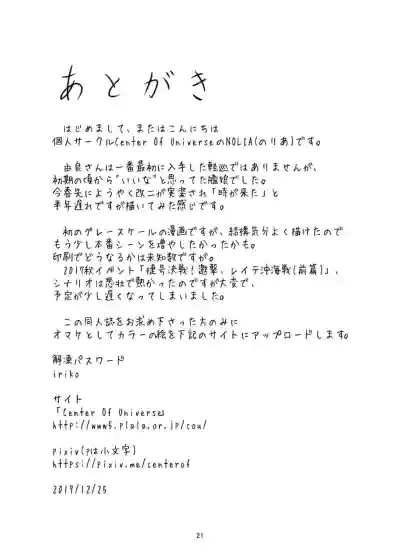 あとがき
はじめまして、またはこんにちは
個人サークルCenter Of UniverseのNOLIA(のりあ)です。
由良さんは一番最初に入手した軽巡ではありませんが、
初期の頃から"いいな"と思ってた艦娘でした。
今春先にようやく改二が実装され「時が来た」と
半年遅れですが描いてみた感じです。
初のグレースケールの漫画ですが、結構気分よく描けたので
もう少し本番シーンを増やしたかったかも。
印刷でどうなるかは未知数ですが。
2017秋イベント「捷号決戦！邀撃、レイテ沖海戦(前篇)」、
シナリオは悲壮で熱かったのですが大変で、
予定が少し遅くなってしまいました。
この同人誌をお求め下さった方のみに
オマケとしてカラーの絵を下記のサイトにアップロードします。
解凍パスワード
iriko
サイト
「Center Of Universe」
http://www5.plala.or.jp/cou/
pixiv(pは小文字)
https://pixiv.me/centerof
2017/12/25
21